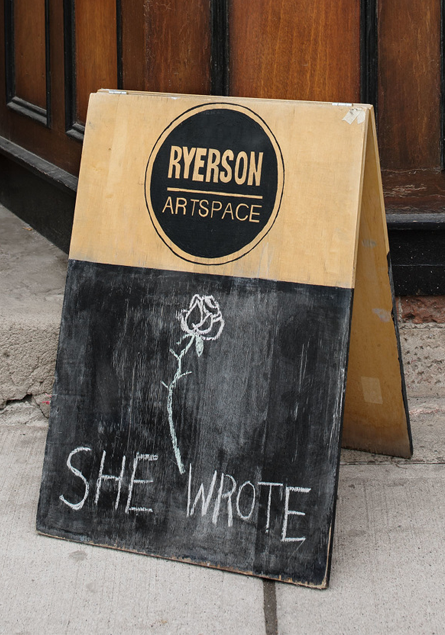 RYERSON
ARTSPACE
SHE WROTE